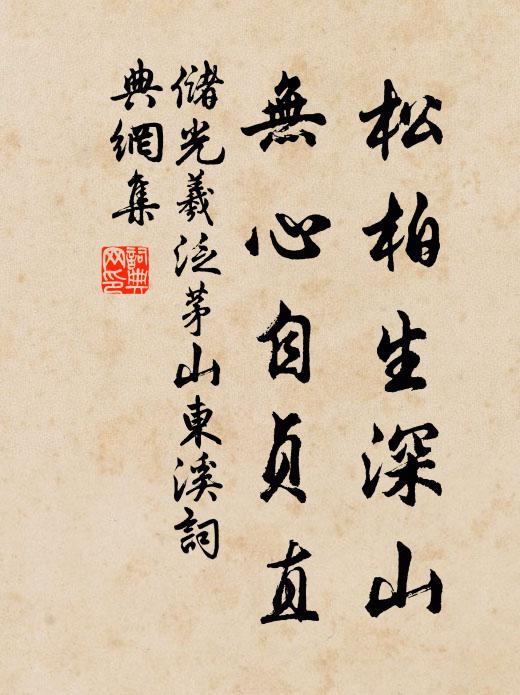 松柏生深山
無心自貞直
儲光羲泛茅山東溪詞
典網集
詞典網印